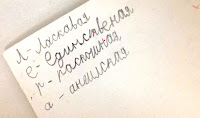 Л - Ласкавая
е - единственая
р - распошная
а - ангилская